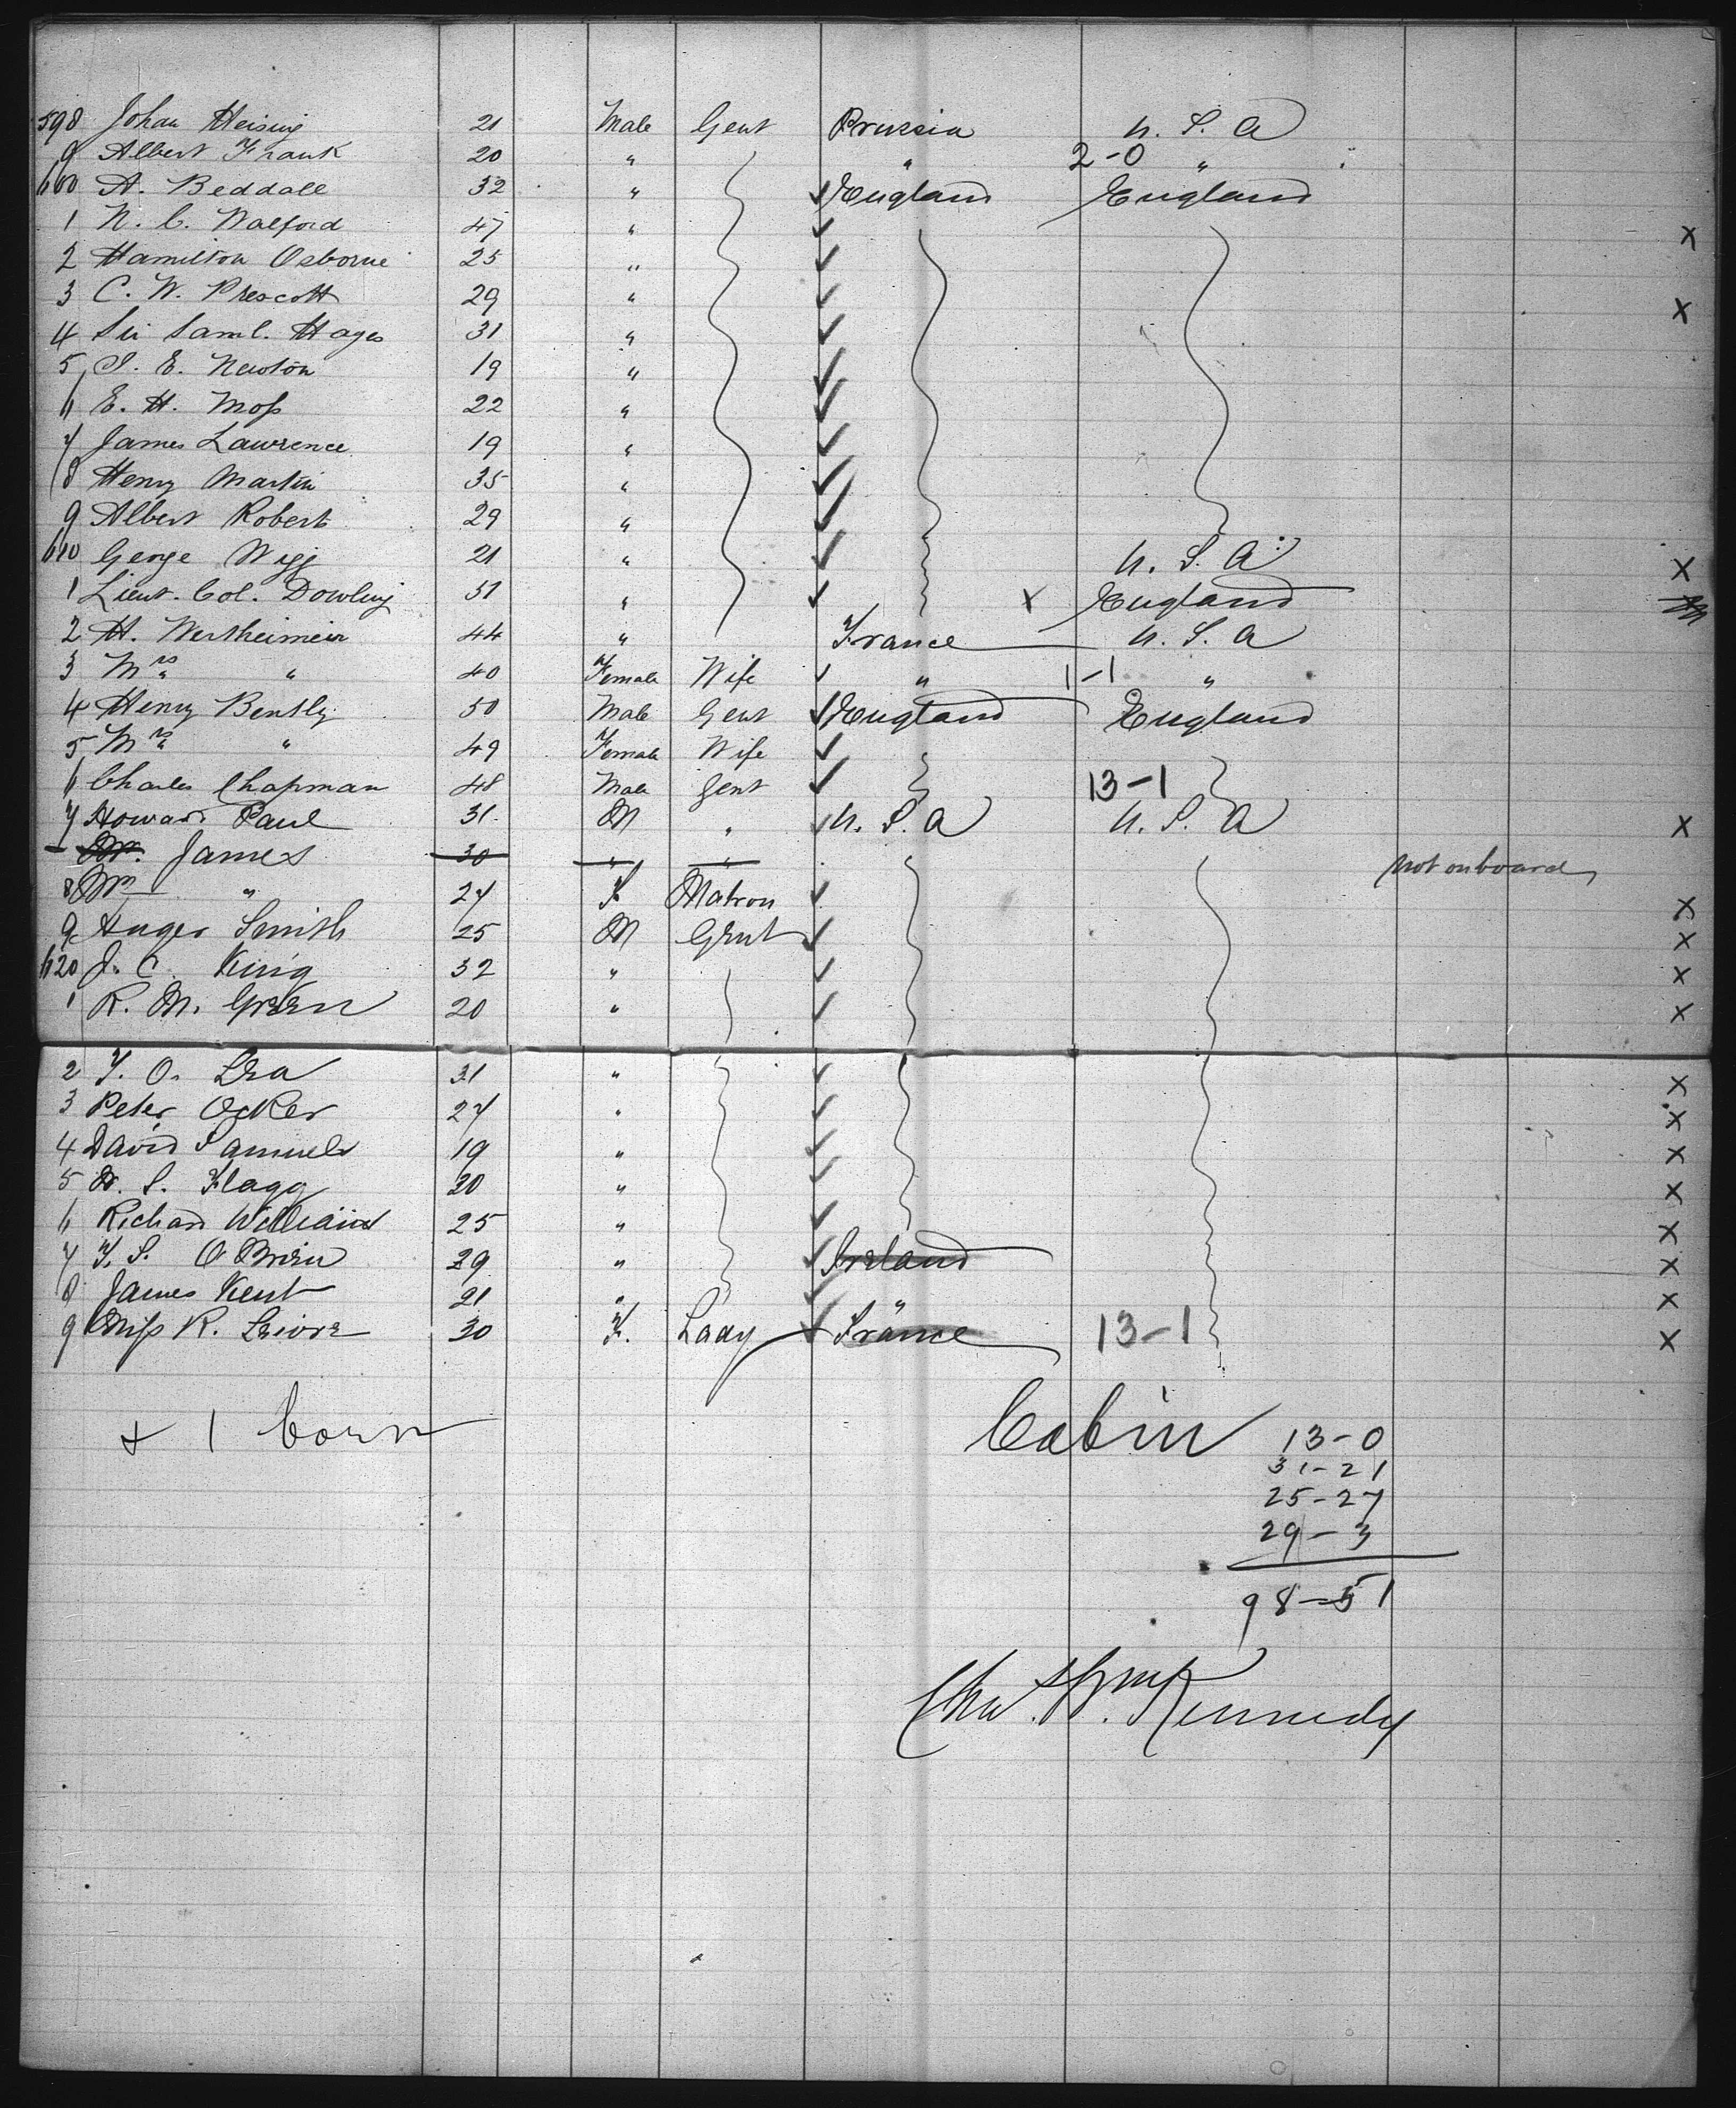 598 Johan Heising 21 Male Gent Prussia U. S. A
9 Albert Frank 20 " " 2-0 "
600 A. Beddall 32 " England England
1 N. C. Walford 47 " X
2 Hamilton Osborne 25 "
3 C. W. Prescott 29 " X
4 Sir Saml. Hayes 31 "
5 S. E. Newton 19 "
6 E. H. Moss 22 "
7 James Lawrence 19 "
8 Henry Martin 35 "
9 Albert Roberts 29 "
610 George Wigg 21 " U. S. A X
1 Lieut. Col. Dowling 31 " X England
2 H. Wertheimer 44 " France U. S. A
3 Mrs " 40 Female Wife " 1-1 "
4 Henry Bently 50 Male Gent England England
5 Mrs " 49 Female Wife
6 Charles Chapman 48 Male Gent 13-1
7 Howard Paul 31 M " U. S. A U. S. A X
Mr. James 30 " " Not onboard
8 Mrs " 27 F Matron X
9 Huger Smith 25 M Gent X
620 J. C. King 32 " X
1 R. M. Green 20 " X
2 T. O. Lea 31 " X
3 Peter Ocker 27 " X
4 David Samuels 19 " X
5 W. S. Flagg 20 " X
6 Richard Williams 25 " X
7 T. S. O'Brien 29 " Ireland X
8 James Kent 21 " " X
9 Miss R. 30 F. Lady France 13-1 X
+ 1 born
Cabin 13-0
31-21
25-27
29-3
98-51
Kennedy